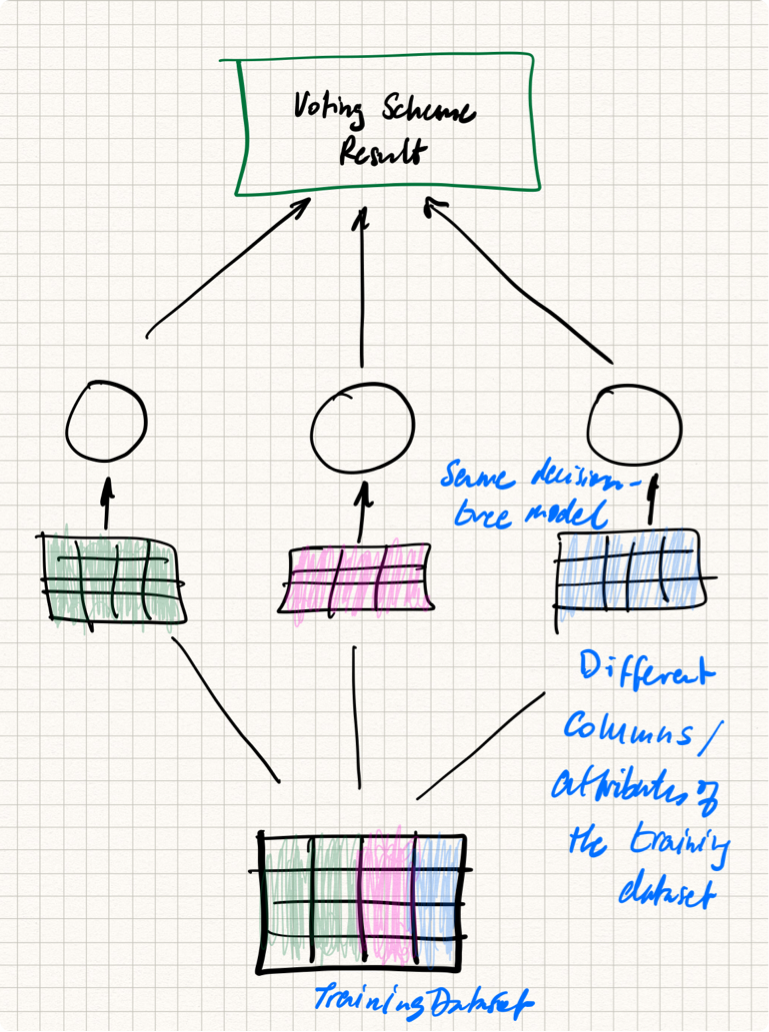 Voting Scheme
Result
Same decision-
tree model
Different
Columns/
attributes of
the training
dataset
Training Dataset